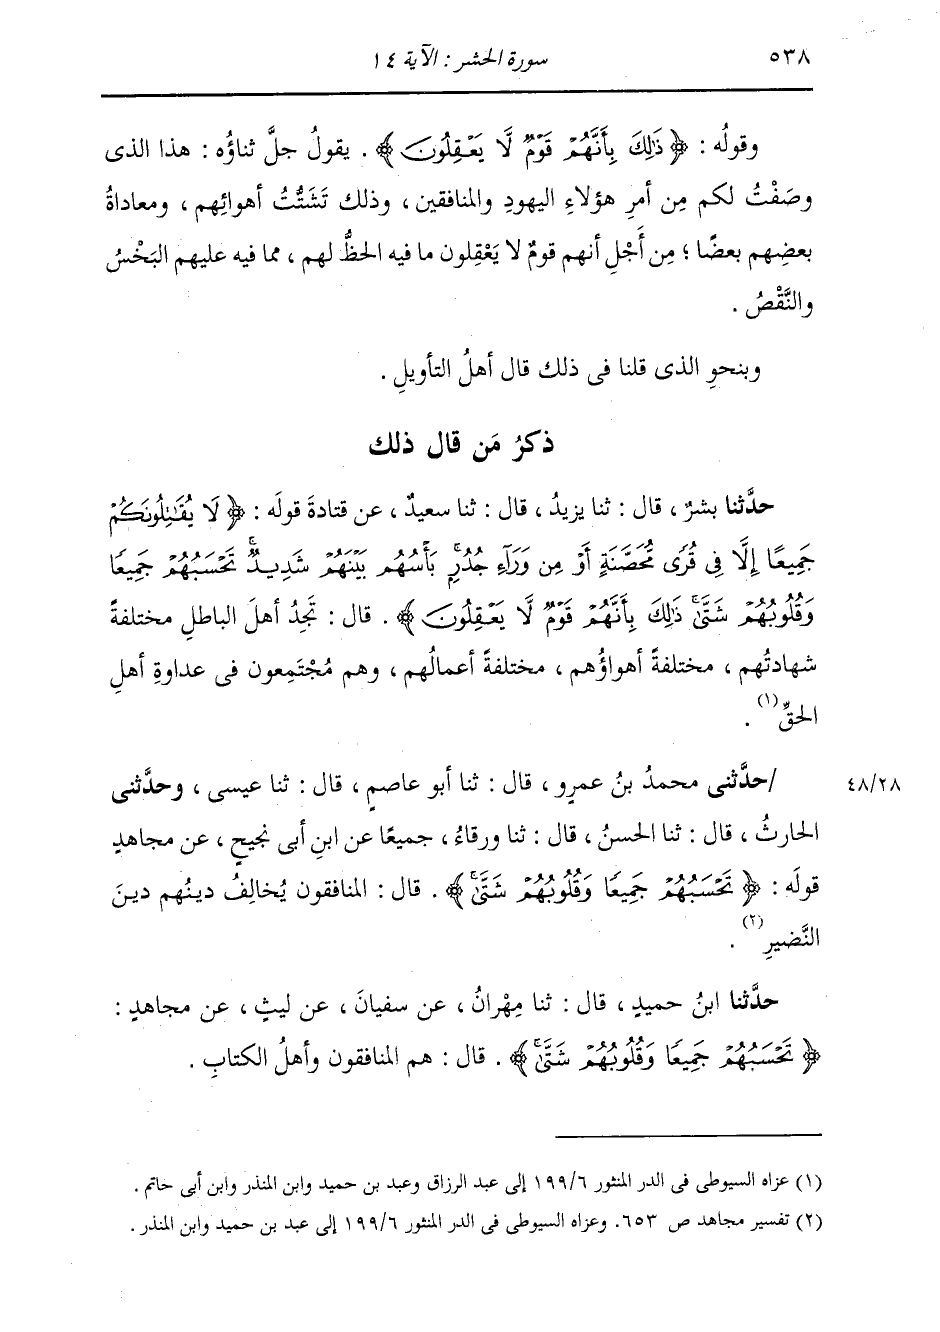 ٥٣٨
سورة الحشر : الآية ١٤
وقولُه : ﴿ ذَٰلِكَ بِأَنَّهُمْ قَوْمٌ لَّا يَعْقِلُونَ ﴾ . يقولُ جلَّ ثناؤُه : هذا الذى
وصَفْتُ لكم مِن أمرِ هؤلاءِ اليهودِ والمنافقين ، وذلك تَشَتُّتُ أهوائِهم ، ومعاداةُ
بعضِهم بعضًا ؛ مِن أَجْلِ أنهم قومٌ لا يَعْقِلون ما فيه الحظُّ لهم ، مما فيه عليهم البَخْسُ
والنَّقْصُ .
وبنحوِ الذى قلنا فى ذلك قال أهلُ التأويلِ .
ذكرُ مَن قال ذلك
حدَّثنا بشرٌ ، قال : ثنا يزيدُ ، قال : ثنا سعيدٌ ، عن قتادةَ قولَه : ﴿ لَا يُقَٰتِلُونَكُمْ
جَمِيعًا إِلَّا فِى قُرًى مُّحَصَّنَةٍ أَوْ مِن وَرَآءِ جُدُرٍۭ بَأْسُهُم بَيْنَهُمْ شَدِيدٌ تَحْسَبُهُمْ جَمِيعًا
وَقُلُوبُهُمْ شَتَّىٰ ذَٰلِكَ بِأَنَّهُمْ قَوْمٌ لَّا يَعْقِلُونَ ﴾ . قال : تَجِدُ أهلَ الباطلِ مختلفةً
شهادتُهم ، مختلفةً أهواؤُهم ، مختلفةً أعمالُهم ، وهم مُجْتَمِعون فى عداوةِ أهلِ
الحقِّ(١) .
/حدَّثنى محمدُ بنُ عمرٍو ، قال : ثنا أبو عاصمٍ ، قال : ثنا عيسى ، وحدَّثنى ٤٨/٢٨
الحارثُ ، قال : ثنا الحسنُ ، قال : ثنا ورقاءُ ، جميعًا عن ابنِ أبى نجيحٍ ، عن مجاهدٍ
قولَه : ﴿ تَحْسَبُهُمْ جَمِيعًا وَقُلُوبُهُمْ شَتَّىٰ ﴾ . قال : المنافقون يُخالِفُ دينُهم دينَ
النَّضيرِ(٢) .
حدَّثنا ابنُ حميدٍ ، قال : ثنا مِهْرانُ ، عن سفيانَ ، عن ليثٍ ، عن مجاهدٍ :
﴿ تَحْسَبُهُمْ جَمِيعًا وَقُلُوبُهُمْ شَتَّىٰ ﴾ . قال : هم المنافقون وأهلُ الكتابِ .
(١) عزاه السيوطى فى الدر المنثور ١٩٩/٦ إلى عبد الرزاق وعبد بن حميد وابن المنذر وابن أبى حاتم .
(٢) تفسير مجاهد ص ٦٥٣. وعزاه السيوطى فى الدر المنثور ١٩٩/٦ إلى عبد بن حميد وابن المنذر .